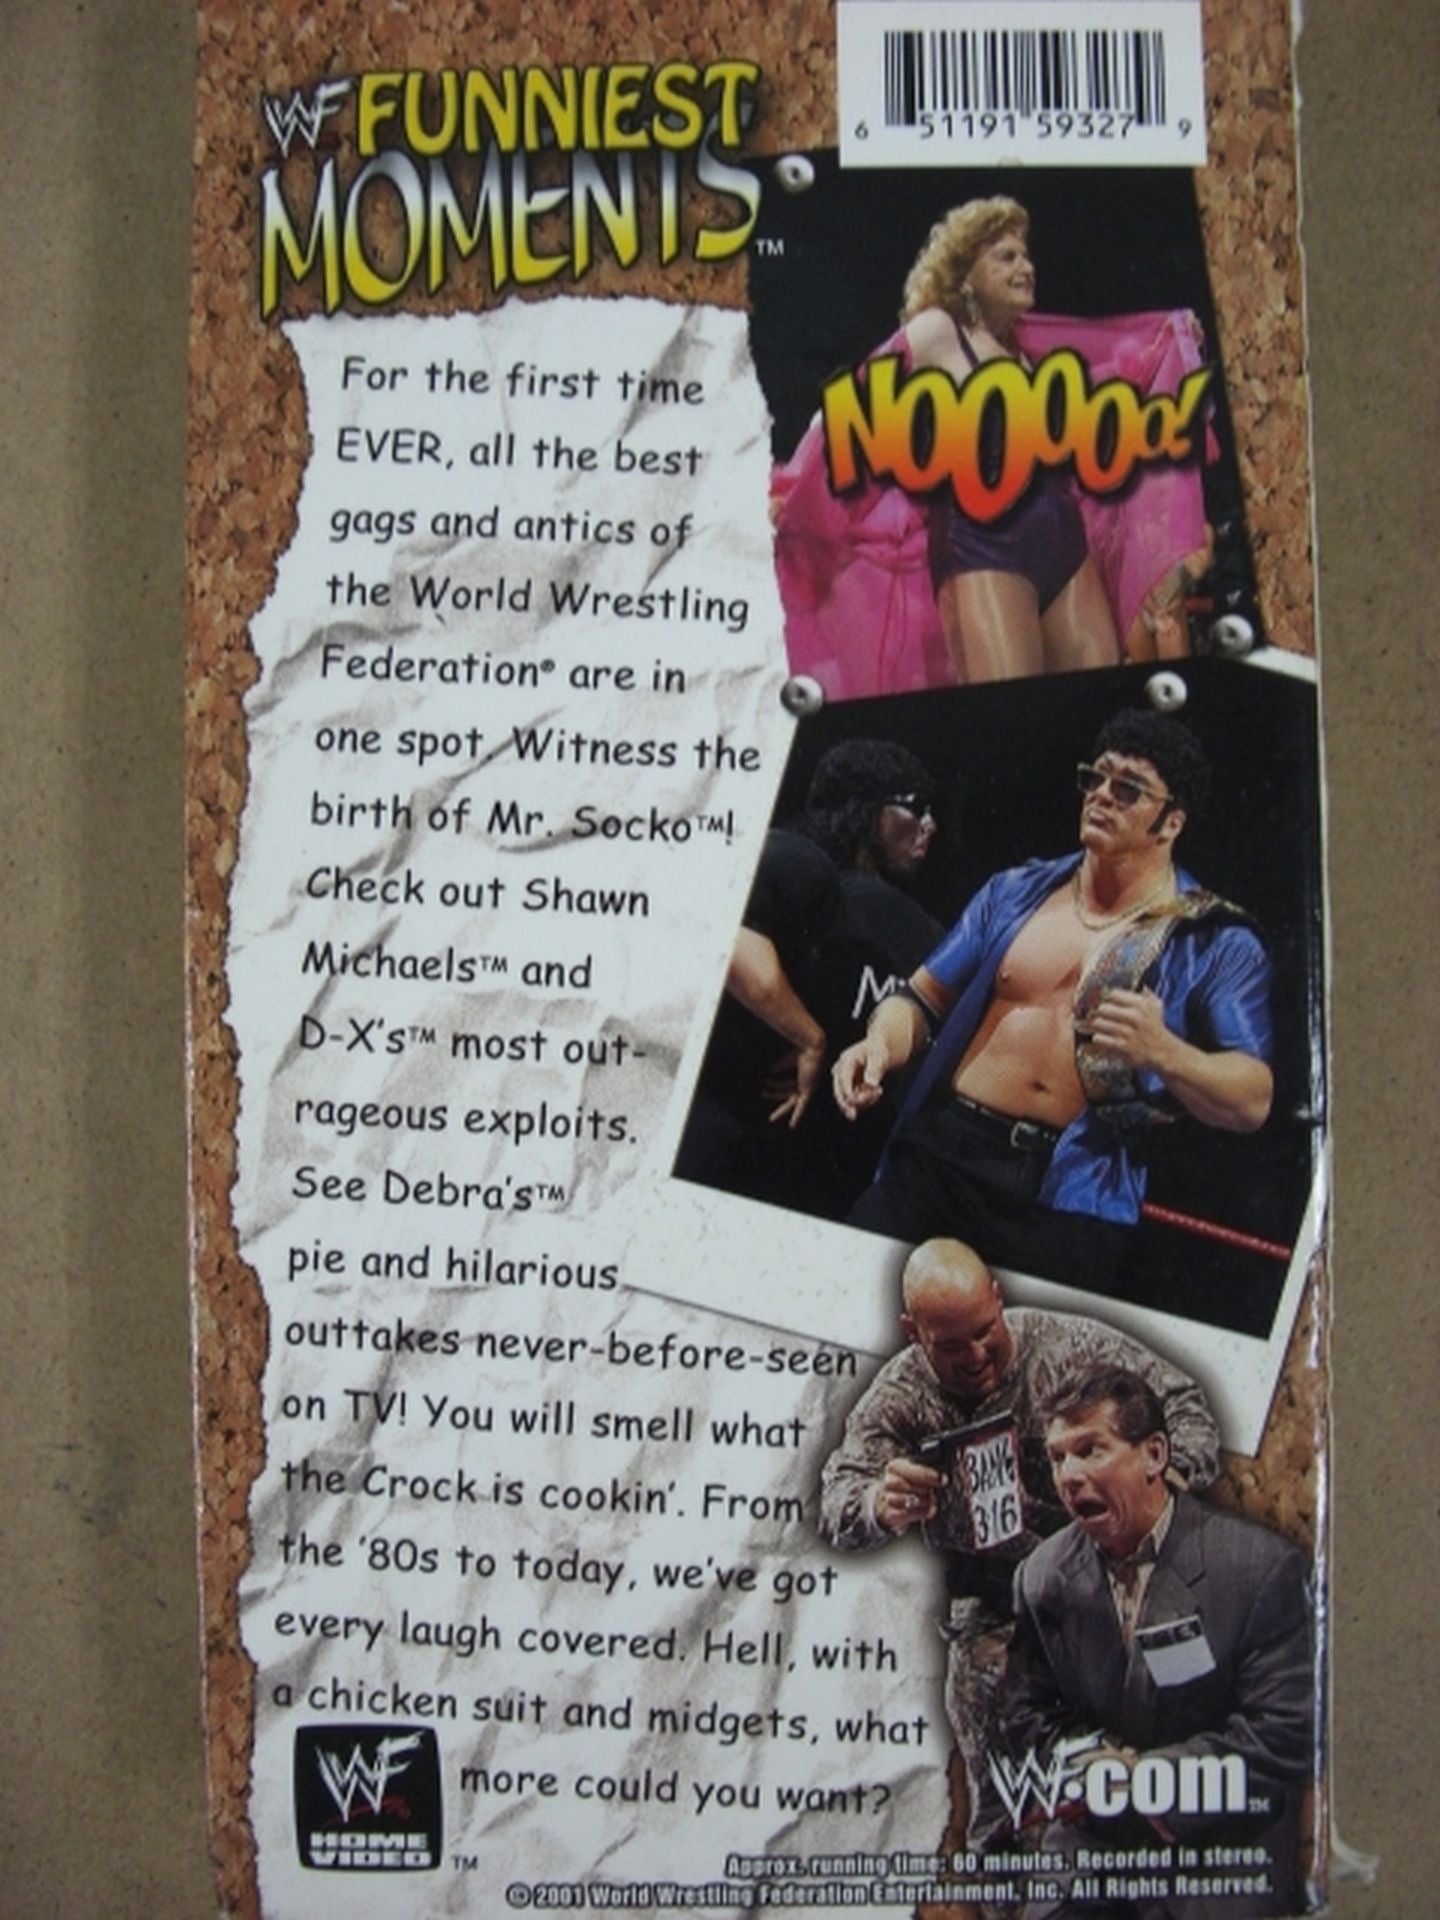 6 51191 59327 9
WF FUNNIEST
MOMENTS™
NOOOOO!
For the first time
EVER, all the best
gags and antics of
the World Wrestling
Federation® are in
one spot. Witness the
birth of Mr. Socko™!
Check out Shawn
Michaels™ and
D-X's™ most out-
rageous exploits.
See Debra's™
pie and hilarious
outtakes never-before-seen
on TV! You will smell what
the Crock is cookin'. From
the '80s to today, we've got
every laugh covered. Hell, with
a chicken suit and midgets, what
more could you want?
M
BANG
3:16
WF
HOME
VIDEO™
WF.com™
Approx. running time: 60 minutes. Recorded in stereo.
© 2001 World Wrestling Federation Entertainment, Inc. All Rights Reserved.